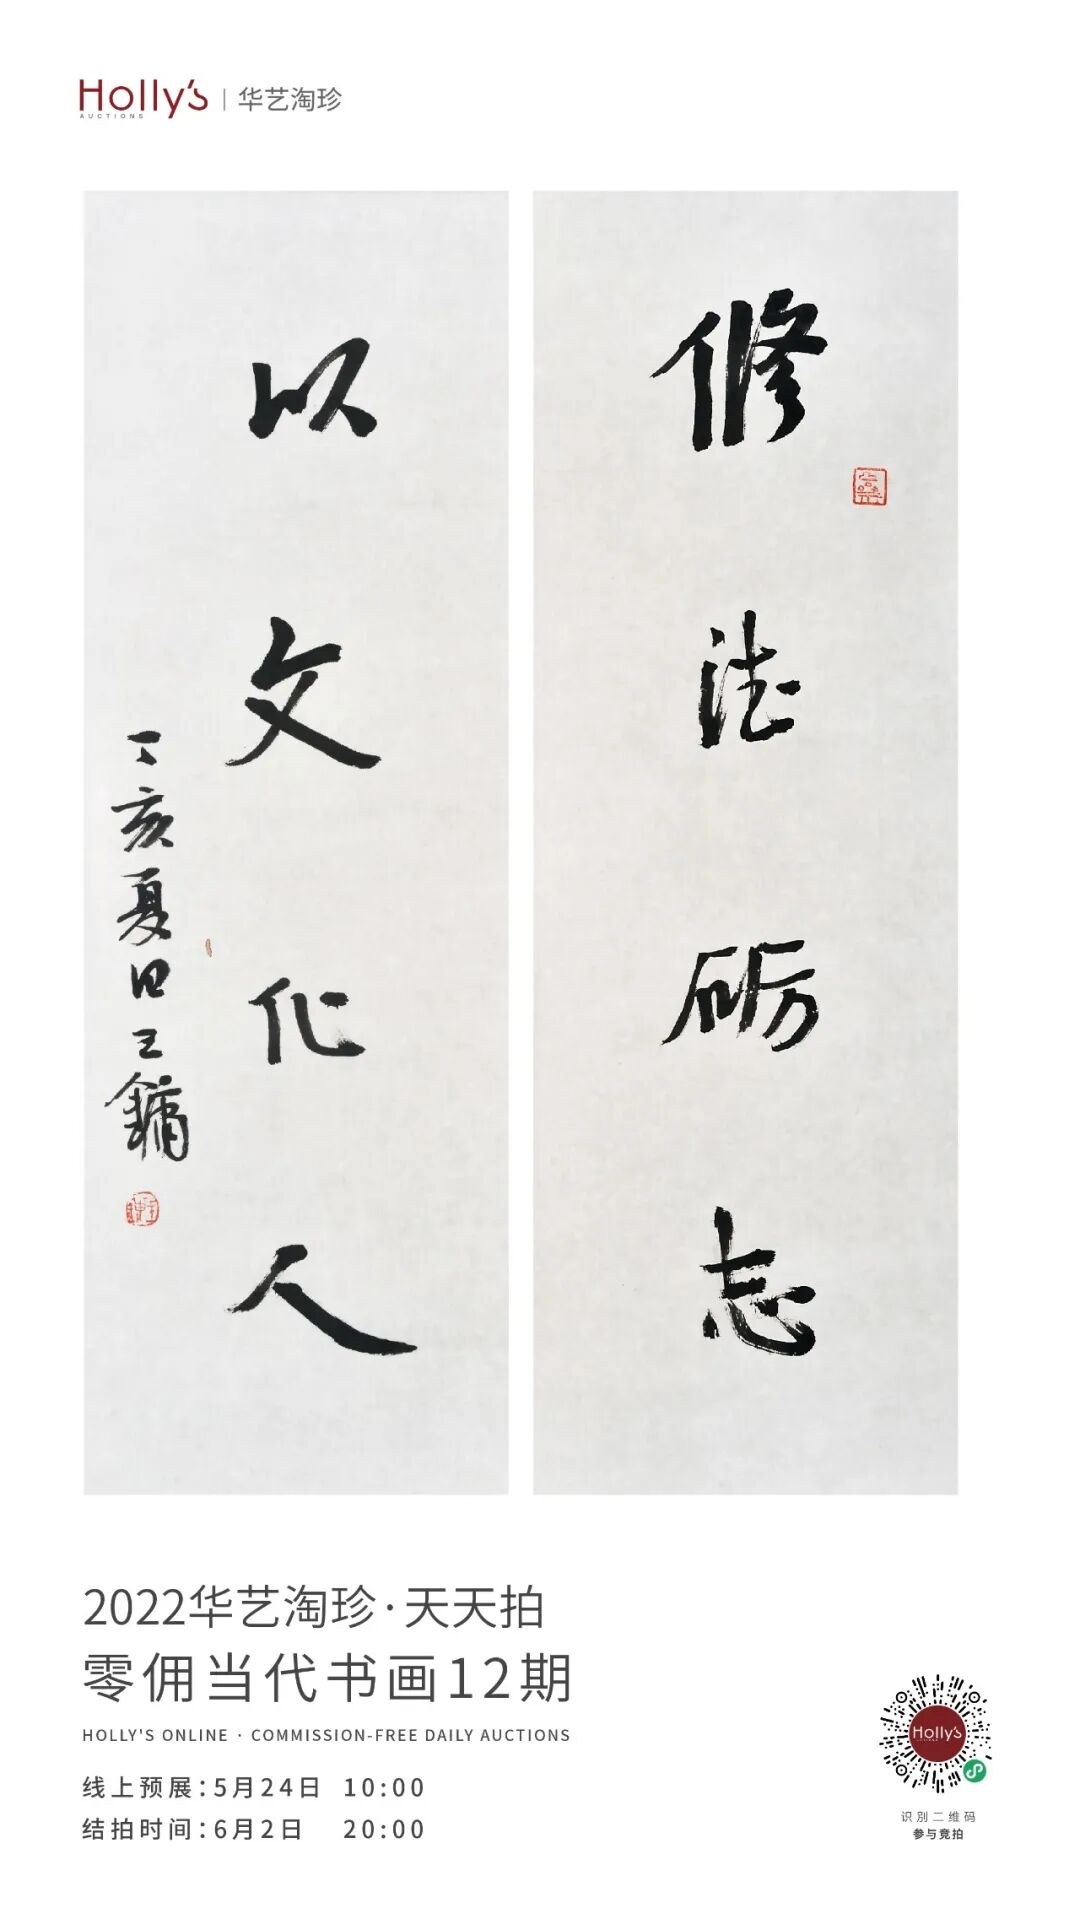 Holly's
AUCTIONS
华艺淘珍
修德砺志
以文化人
丁亥夏日王鏞
2022华艺淘珍·天天拍
零佣当代书画12期
HOLLY'S ONLINE · COMMISSION-FREE DAILY AUCTIONS
线上预展：5月24日 10:00
结拍时间：6月2日 20:00
Holly's
识别二维码
参与竞拍